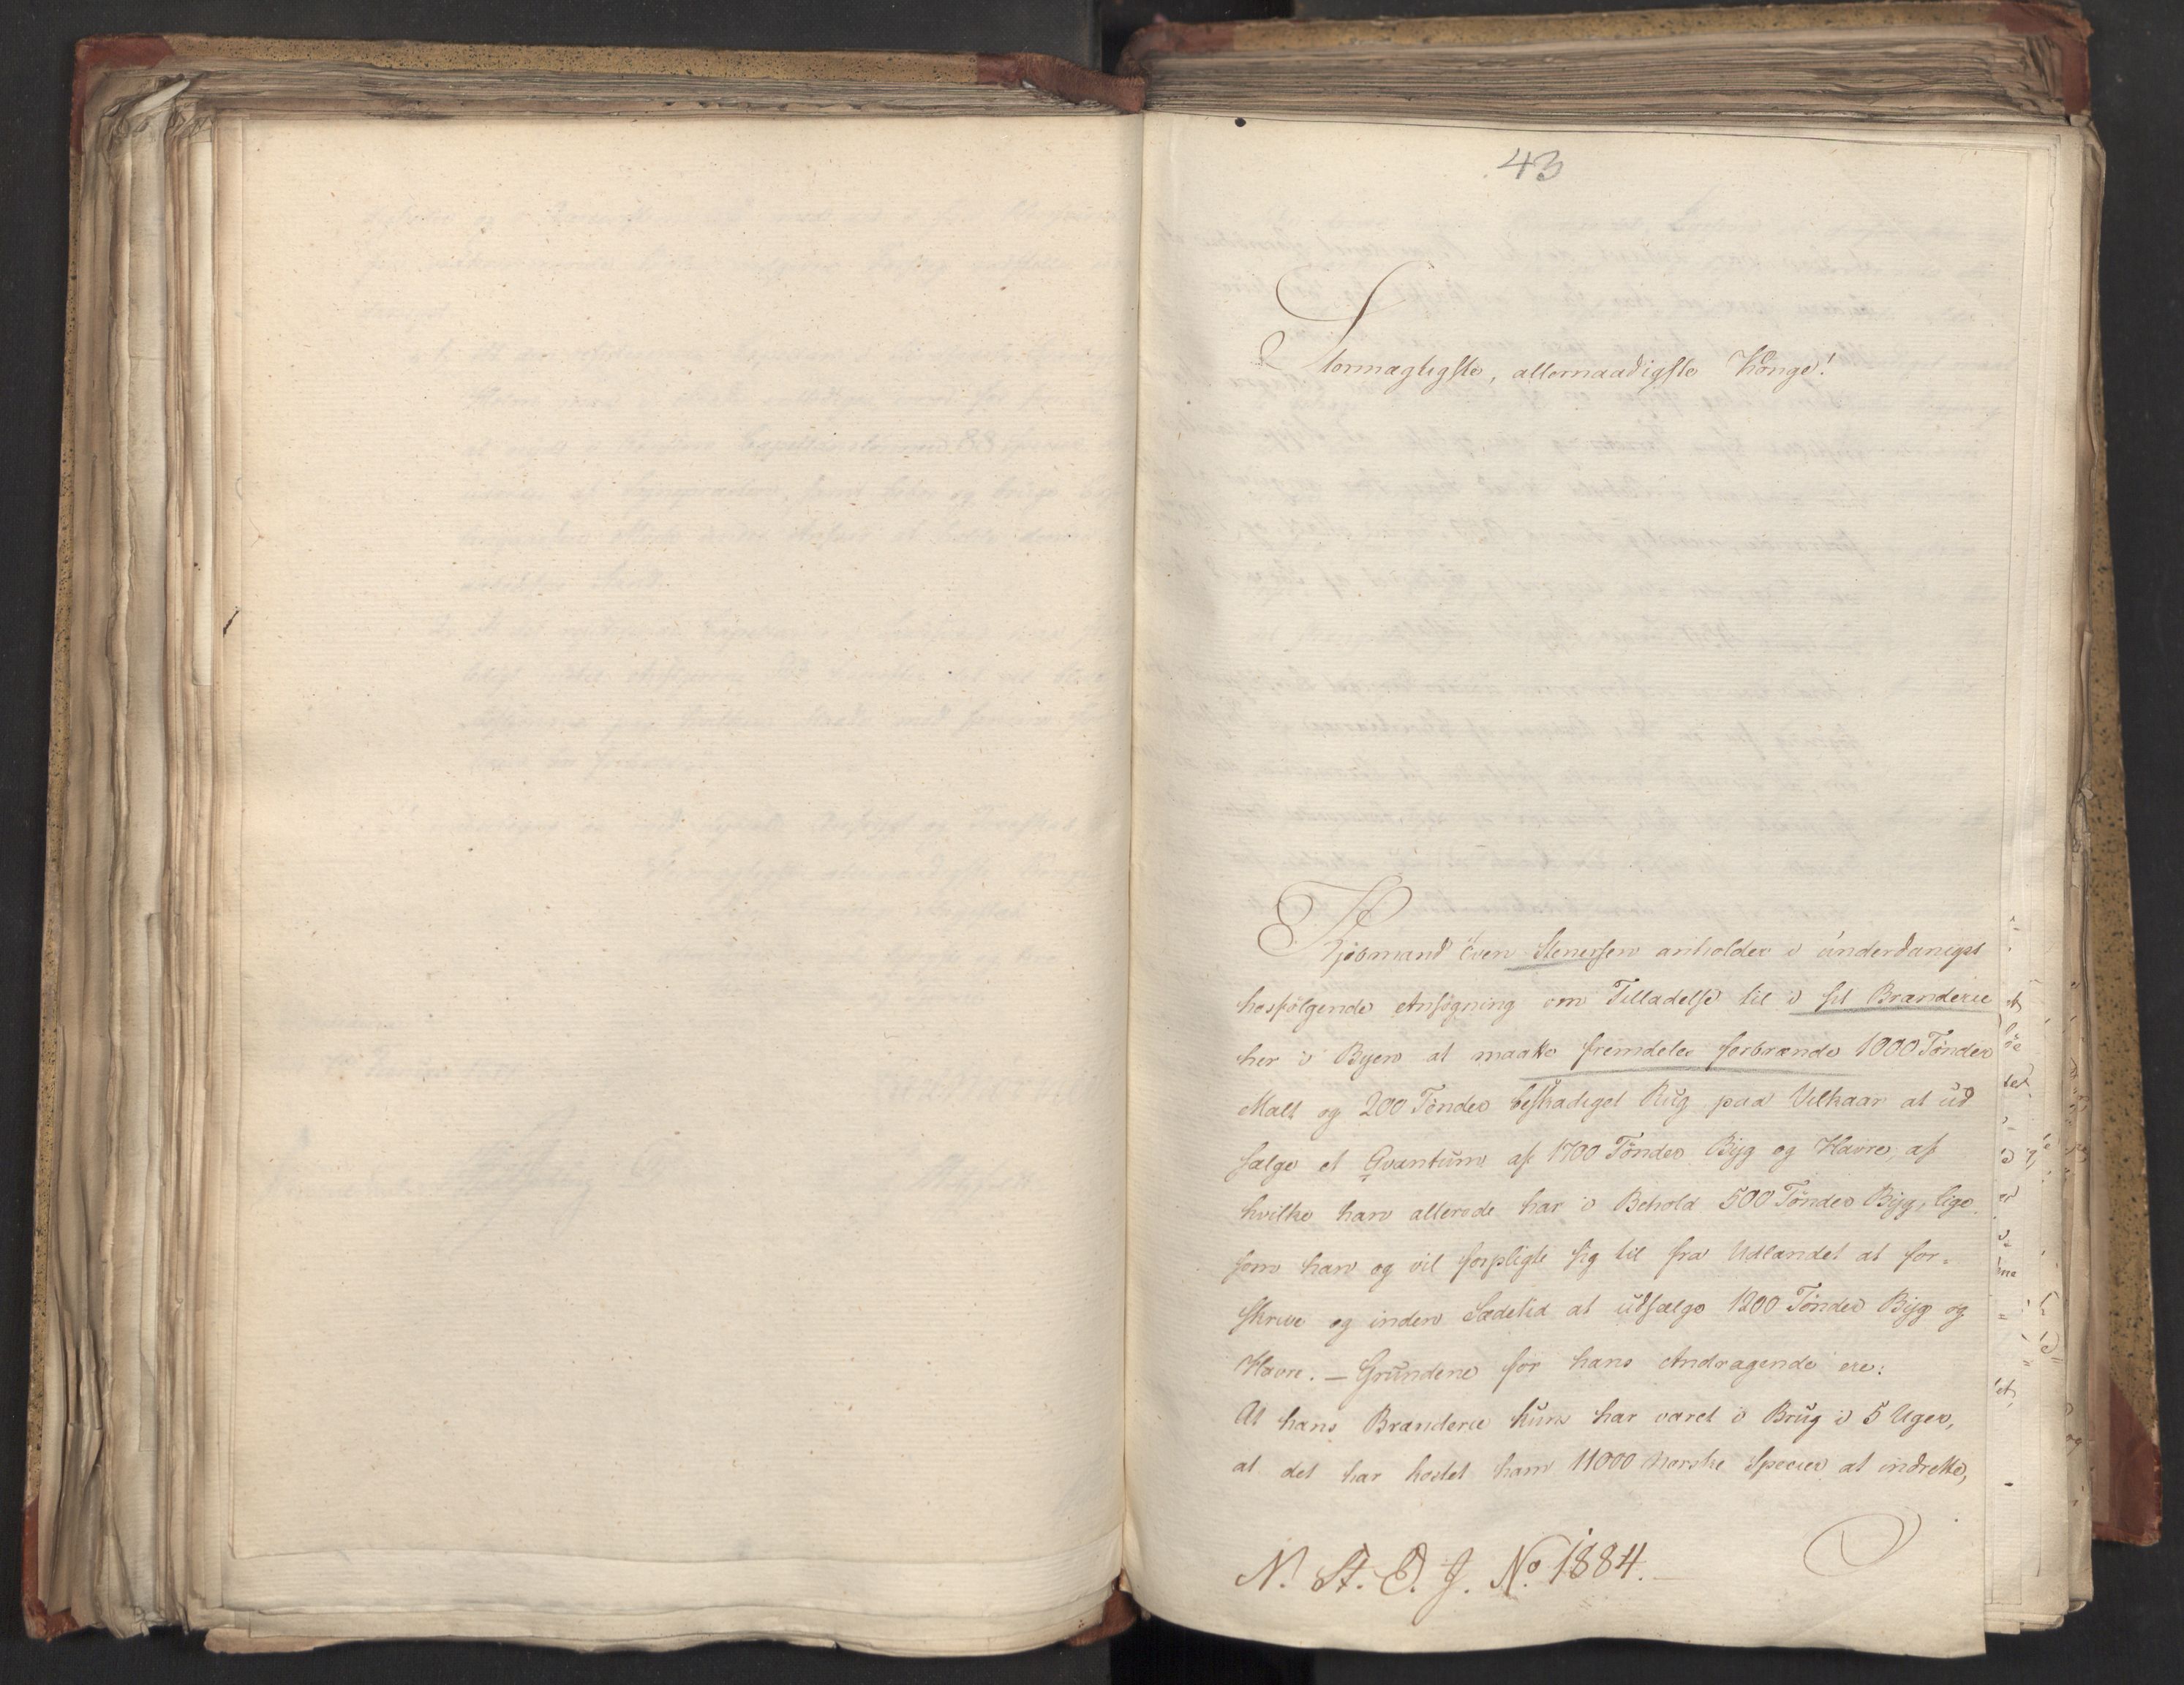 43
Stormægtigste, allernaadigste Konge!
Kjøbmand Even Stenersen anholder i underdanigst
hosfølgende Ansøgning om Tilladelse til i sit Brænderie
her i Byen at maatte fremdeles forbrænde 1000 Tønder
Malt og 200 Tønder beskadiget Rug paa Vilkaar at ud
sælge et Qvantum af 1700 Tønder Byg og Havre, af
hvilke han allerede har i Behold 500 Tønder Byg, lige
som han og vil forpligte sig til fra Udlandet at for-
skrive og inden Sædetid at udsælge 1200 Tønder Byg og
Havre. — Grundene for hans Andragende ere:
At hans Brænderie kun har været i Brug i 5 Uger,
at det har kostet ham 11000 Norske Species at indrette,
N. St. E. J. No. 1884.